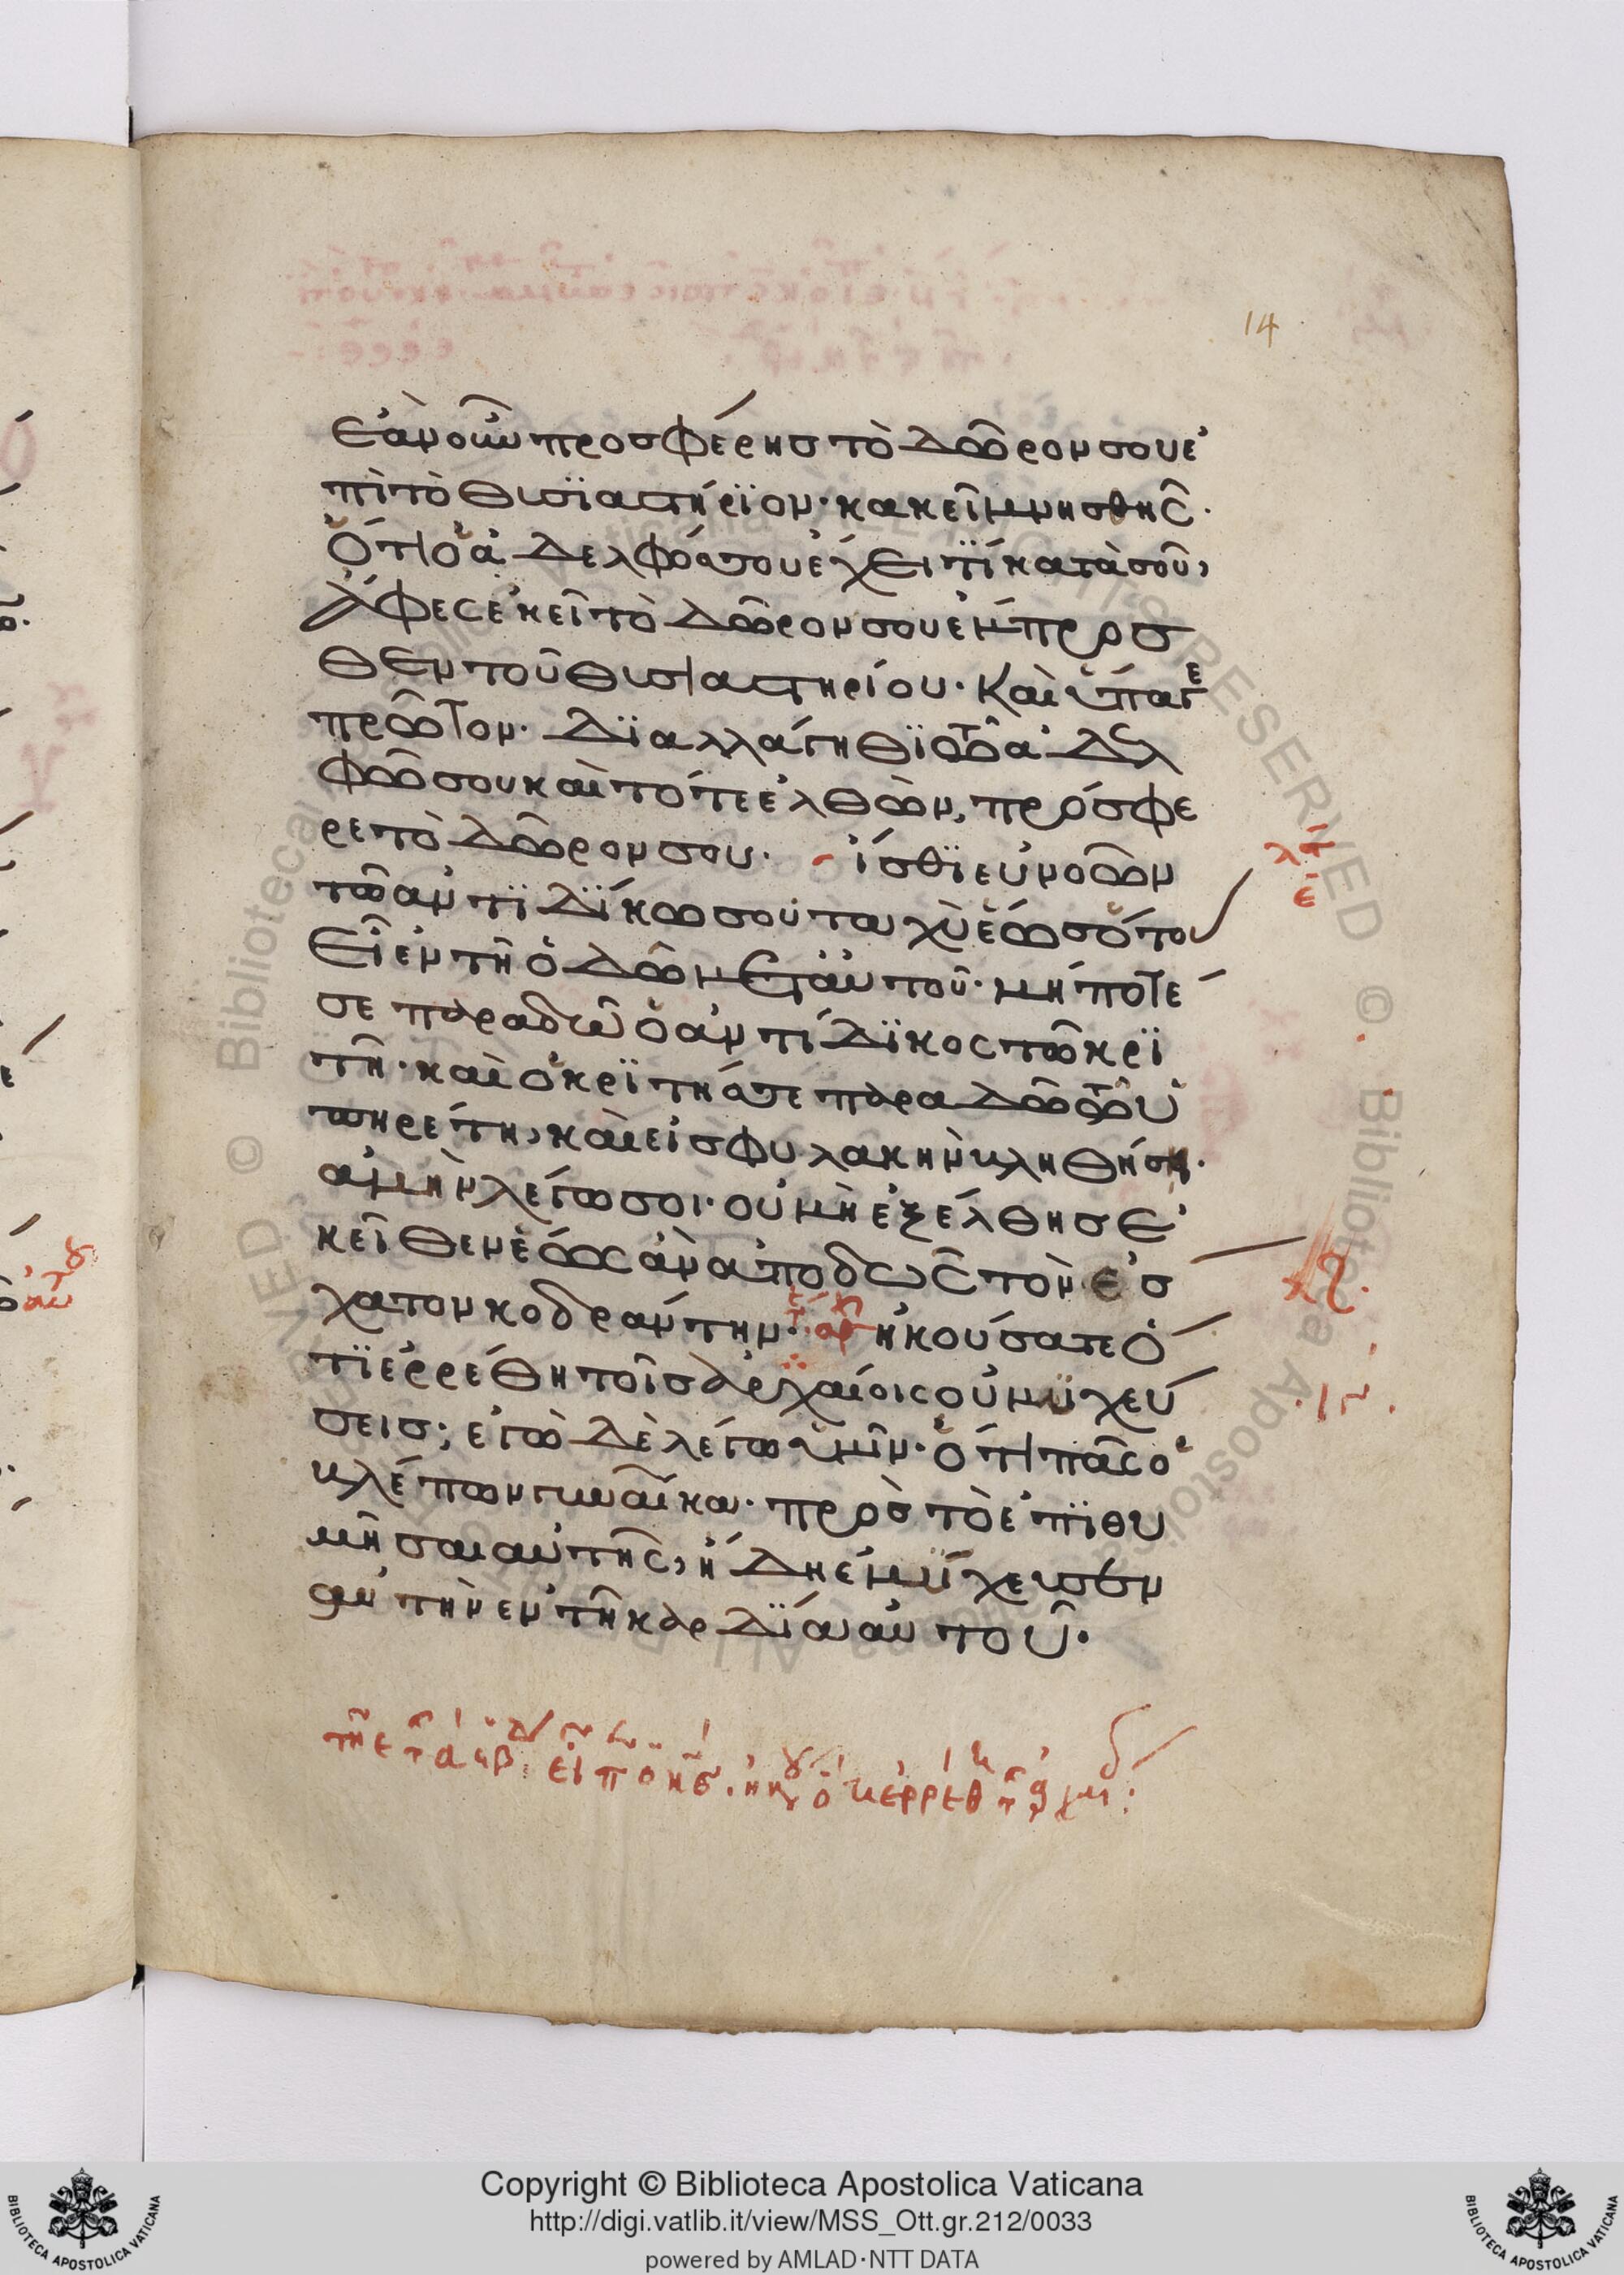 14
ἐὰν οὖν προσφέρησ τὸ δῶρον σου ἐ
πὶ τὸ θισϊαστήρϊον· κακεῖ μνησθῆς·
ὅτι ὁ ἀδελφόσ σου ἔχει τϊ κατὰ σοῦ,
ἄφες ἐκεῖ τὸ δῶρον σου ἔμπροσ
θεν τοῦ θισιαστηρίου· καὶ ὕπαγε
πρῶτον· δϊαλλάγηθϊ τῶ ἀδελ
φῶ σου καὶ τότε ἐλθὼν, πρόσφε
ρε τὸ δῶρον σου· ἴσθϊ εὐνοῶν
τῶ ἀντϊδίκω σου ταχὺ ἕωσ ὅτου
εἶ ἐν τῆ ὁδῶ μετ αὐτοῦ· μήποτέ
σε παραδῶ ὁ ἀντίδϊκος τῶ κρϊ
τῆ· καὶ ὁ κρϊτήσ σε παραδῶ τῶ ὑ
πηρέτη, καὶ εἰσ φυλακὴν κληθήση·
ἀμὴν λέγω σοι· οὐ μὴ ἐξέλθησ ἐ
κεῖθεν ἕως ἂν ἀποδῶς τὸν ἔσ
χατον κοδράντην· ἠκούσατε ὅ
τϊ ἐρρέθη τοῖσ ἀρχαίοις οὐ μϋχεύ
σεισ; ἐγὼ δὲ λέγω ὑμῖν· ὅτι πᾶς ὁ
κλέπων γυναῖκα· πρὸσ τὸ ἐπϊθυ
μῆσαι αὐτῆς, ἤδη ἐμϋχευσεν
αὐτὴν ἐν τῆ καρδϊα αὐτοῦ·
Copyright © Biblioteca Apostolica Vaticana
http://digi.vatlib.it/view/MSS_Ott.gr.212/0033
powered by AMLAD·NTT DATA
BIBLIOTECA APOSTOLICA VATICANA
BIBLIOTECA APOSTOLICA VATICANA